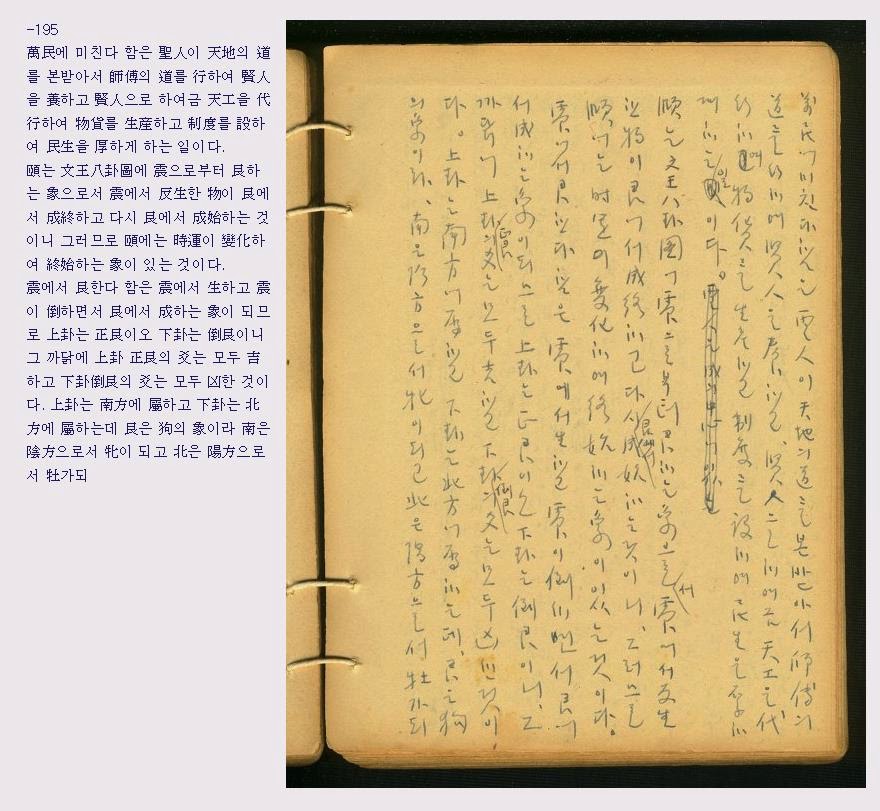 -195
萬民에 미친다 함은 聖人이 天地의 道
를 본받아서 師傅의 道를 行하여 賢人
을 養하고 賢人으로 하여금 天工을 代
行하여 物貨를 生産하고 制度를 設하
여 民生을 厚하게 하는 일이다.
頤는 文王八卦圖에 震으로부터 艮하
는 象으로서 震에서 反生한 物이 艮에
서 成終하고 다시 艮에서 成始하는 것
이니 그러므로 頤에는 時運이 變化하
여 終始하는 象이 있는 것이다.
震에서 艮한다 함은 震에서 生하고 震
이 倒하면서 艮에서 成하는 象이 되므
로 上卦는 正艮이오 下卦는 倒艮이니
그 까닭에 上卦 正艮의 爻는 모두 吉
하고 下卦倒艮의 爻는 모두 凶한 것이
다. 上卦는 南方에 屬하고 下卦는 北
方에 屬하는데 艮은 狗의 象이라 南은
陰方으로서 牝이 되고 北은 陽方으로
서 牡가되
萬民에 미친다 함은 聖人이 天地의 道를 본받아서 師傅의
道를 行하여 賢人을 養하고, 賢人으로 하여금 天工을 代
行하여 物貨를 生産하고 制度를 設하여 民生을 厚하
게 하는 일이다.
頤는 文王八卦圖에 震으로부터 艮하는 象으로서 震에서 反生
한 物이 艮에서 成終하고 다시 艮에서 成始하는 것이니, 그러므로
頤에는 時運이 變化하여 終始하는 象이 있는 것이다.
震에서 艮한다 함은 震에서 生하고 震이 倒하면서 艮에
서 成하는 象이 되므로 上卦는 正艮이오 下卦는 倒艮이니, 그
까닭에 上卦 正艮의 爻는 모두 吉하고 下卦 倒艮의 爻는 모두 凶한 것이
다. 上卦는 南方에 屬하고 下卦는 北方에 屬하는데, 艮은 狗
의 象이라, 南은 陰方으로서 牝이 되고 北은 陽方으로서 牡가 되